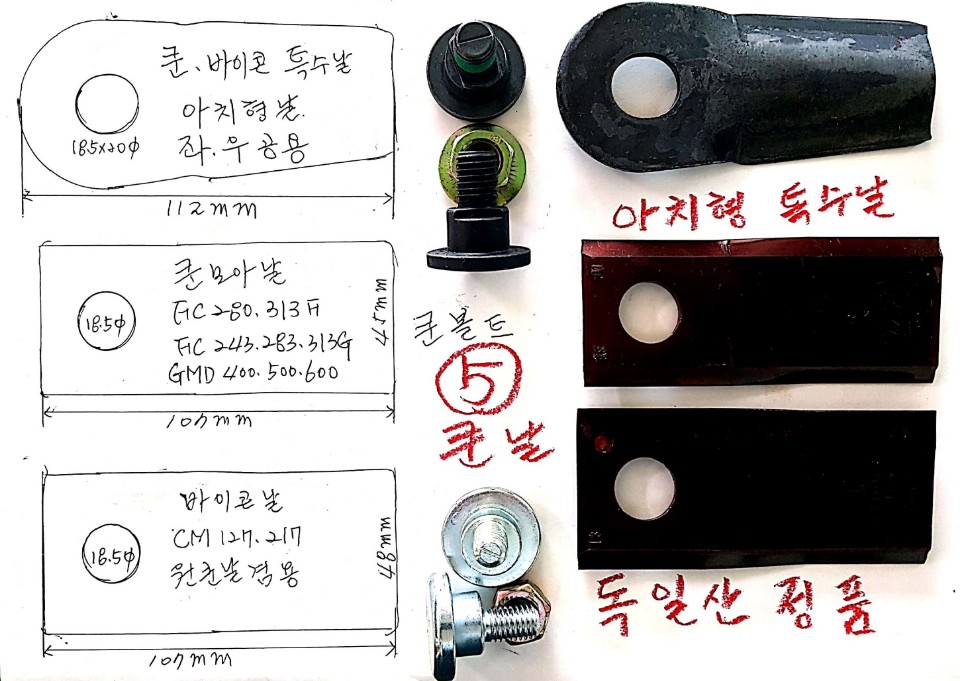 쿤、바이콘 특수날
아치형날.
좌.우 공용
18.5x20φ
112mm
쿤모아날
FC 280.313F
FC 243.283.313G
GMD 400.500.600
18.5φ
107mm
바이콘날
CM 127.217
겸용
18.5φ
48mm
107mm
쿤볼트
⑤
쿤날
아치형 특수날
독일산 정품